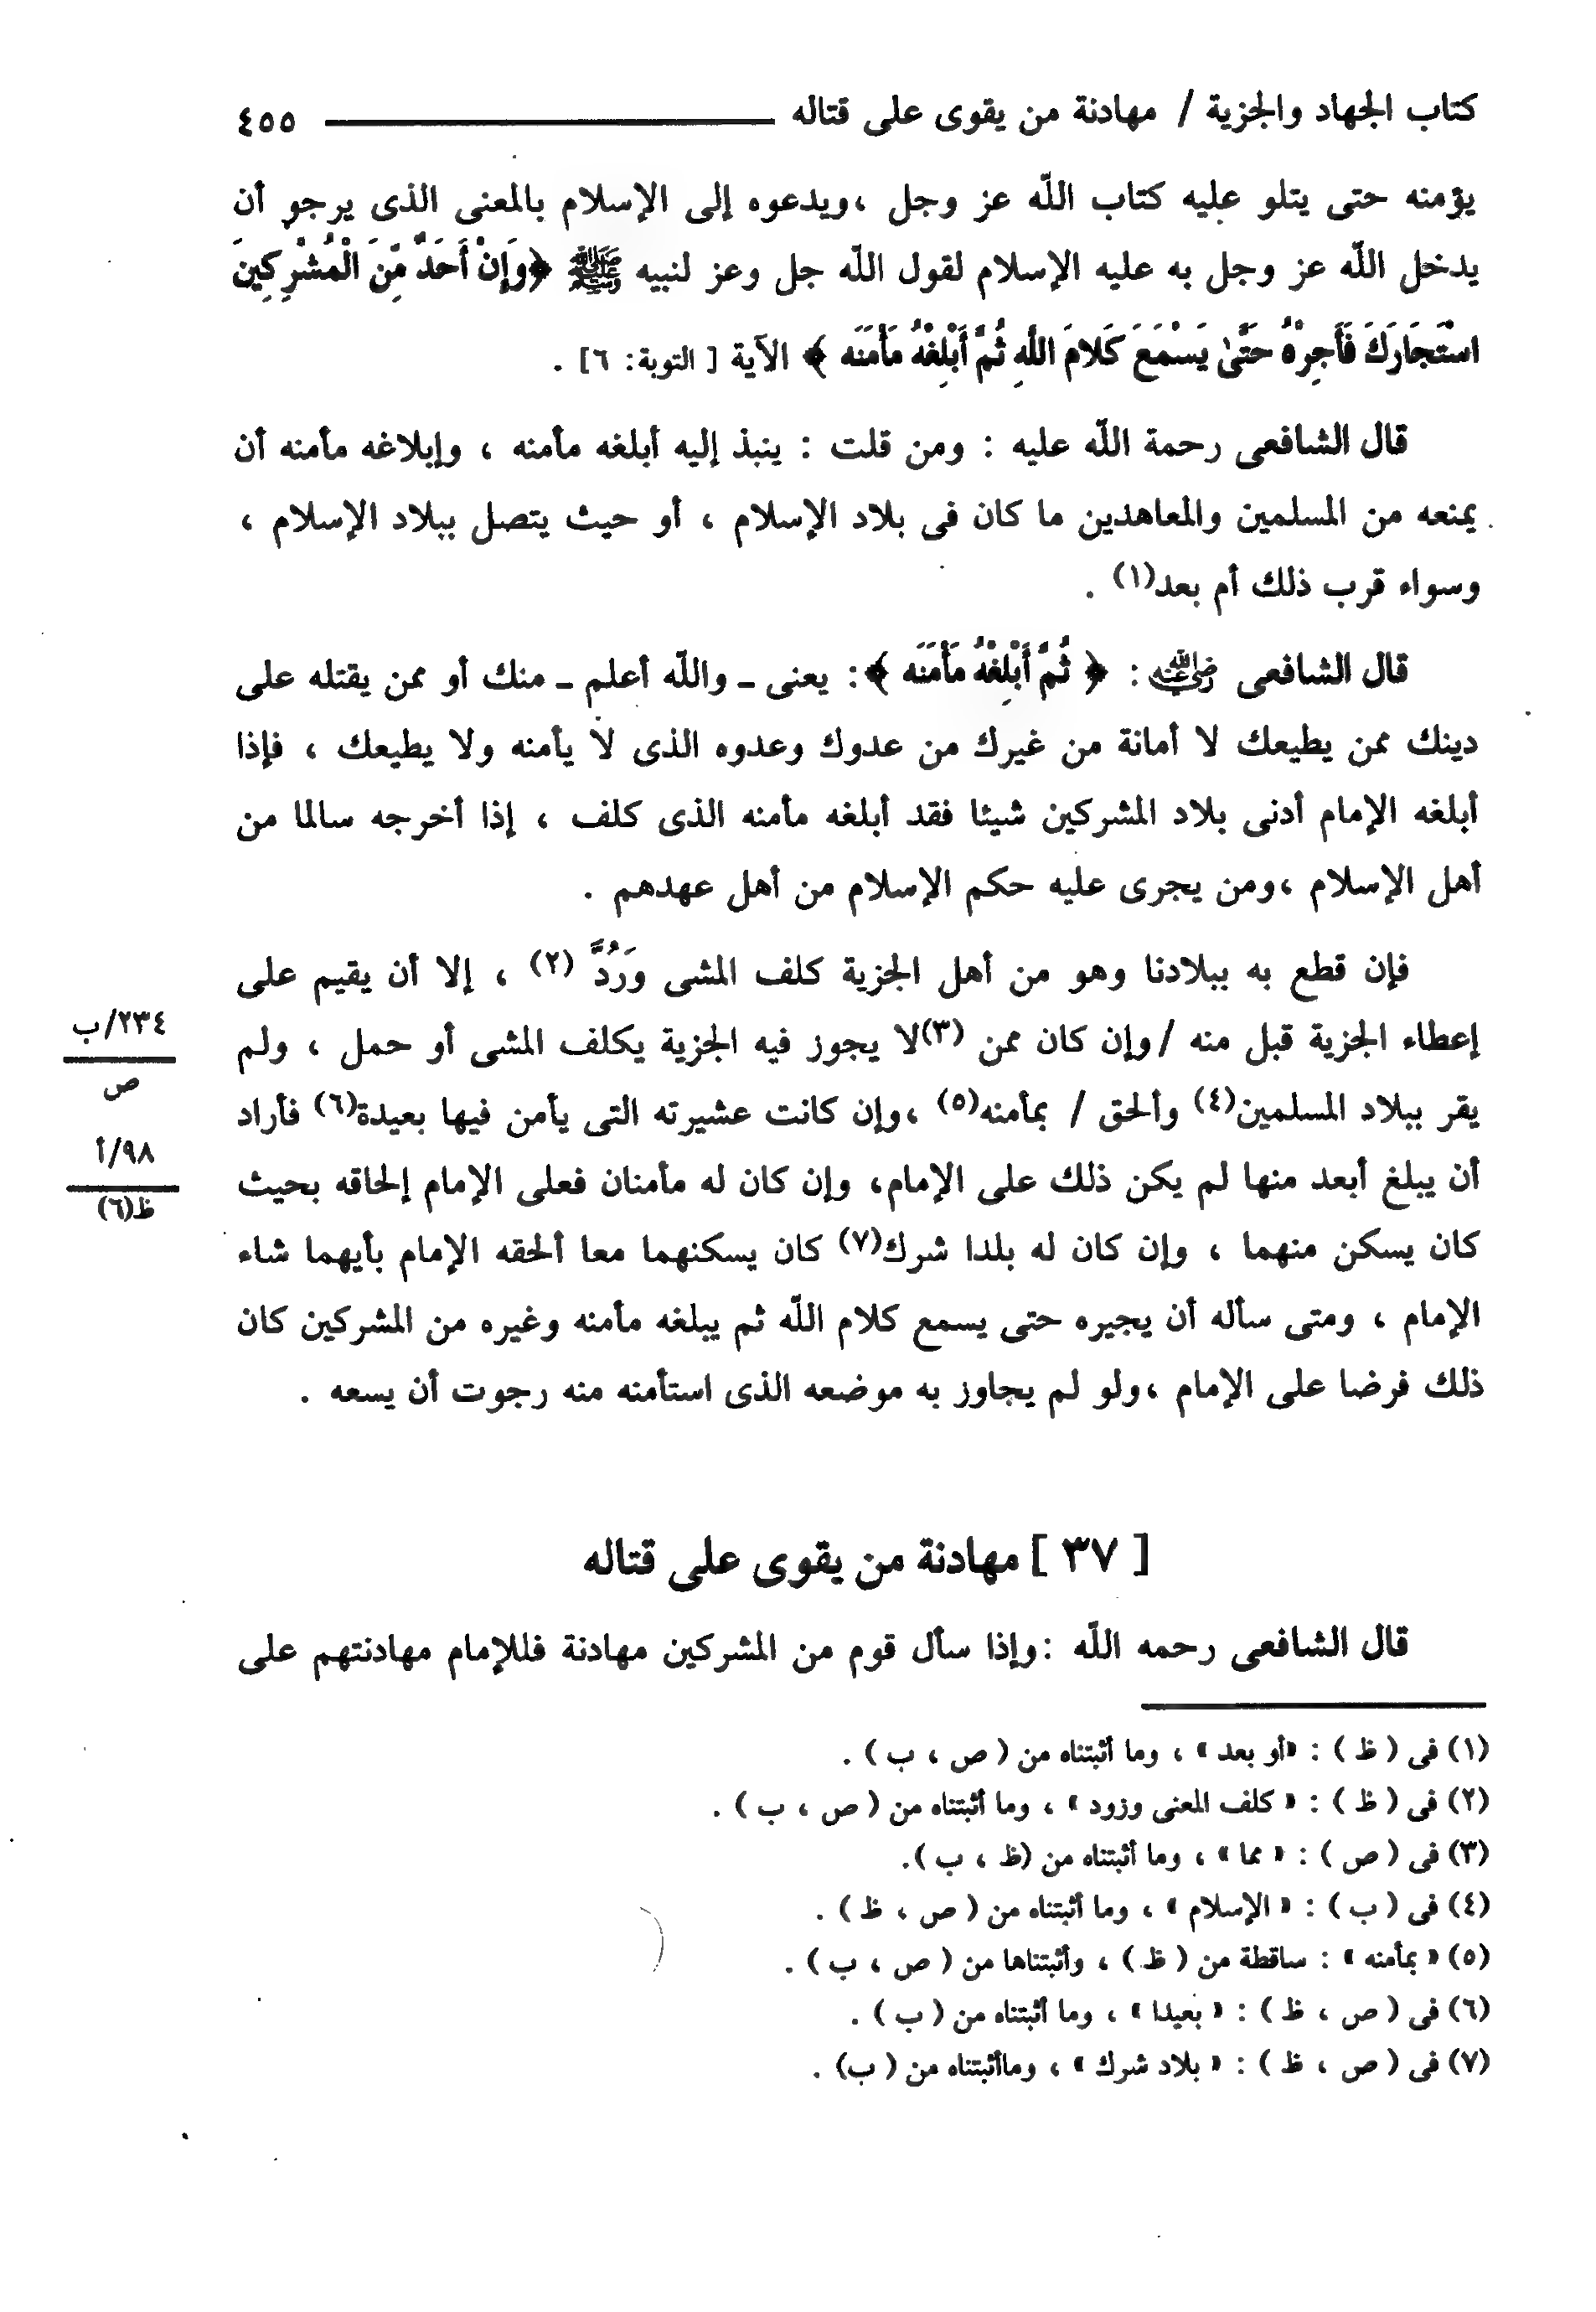 كتاب الجهاد والجزية / مهادنة من يقوى على قتاله ٤٥٥
يؤمنه حتى يتلو عليه كتاب اللّه عز وجل ،ويدعوه إلى الإسلام بالمعنى الذى يرجو أن
يدخل اللّه عز وجل به عليه الإسلام لقول اللّه جل وعز لنبيه ﷺ ﴿وَإِنْ أَحَدٌ مِّنَ الْمُشْرِكِينَ
اسْتَجَارَكَ فَأَجِرْهُ حَتَّىٰ يَسْمَعَ كَلامَ اللَّهِ ثُمَّ أَبْلِغْهُ مَأْمَنَه ﴾ الآية [ التوبة: ٦] .
قال الشافعى رحمة اللّه عليه : ومن قلت : ينبذ إليه أبلغه مأمنه ، وإبلاغه مأمنه أن
يمنعه من المسلمين والمعاهدين ما كان فى بلاد الإسلام ، أو حيث يتصل ببلاد الإسلام ،
وسواء قرب ذلك أم بعد(١) .
قال الشافعى رضي الله عنه : ﴿ ثُمَّ أَبْلِغْهُ مَأْمَنَه ﴾: يعنى ـ واللّه أعلم ـ منك أو ممن يقتله على
دينك ممن يطيعك لا أمانة من غيرك من عدوك وعدوه الذى لا يأمنه ولا يطيعك ، فإذا
أبلغه الإمام أدنى بلاد المشركين شيئا فقد أبلغه مأمنه الذى كلف ، إذا أخرجه سالما من
أهل الإسلام ،ومن يجرى عليه حكم الإسلام من أهل عهدهم .
فإن قطع به ببلادنا وهو من أهل الجزية كلف المشى ورَُدَّ (٢) ، إلا أن يقيم على
إعطاء الجزية قبل منه /وإن كان ممن (٣)لا يجوز فيه الجزية يكلف المشى أو حمل ، ولم
٢٣٤/ب
ص
يقر ببلاد المسلمين(٤) وألحق / بمأمنه(٥) ،وإن كانت عشيرته التى يأمن فيها بعيدة(٦) فأراد
٩٨/أ
ظ(٦)
أن يبلغ أبعد منها لم يكن ذلك على الإمام، وإن كان له مأمنان فعلى الإمام إلحاقه بحيث
كان يسكن منهما ، وإن كان له بلدا شرك(٧) كان يسكنهما معا ألحقه الإمام بأيهما شاء
الإمام ، ومتى سأله أن يجيره حتى يسمع كلام اللّه ثم يبلغه مأمنه وغيره من المشركين كان
ذلك فرضا على الإمام ،ولو لم يجاوز به موضعه الذى استأمنه منه رجوت أن يسعه .
[ ٣٧ ] مهادنة من يقوى على قتاله
قال الشافعى رحمه اللّه :وإذا سأل قوم من المشركين مهادنة فللإمام مهادنتهم على
(١) فى ( ظ ) : «أو بعد » ، وما أثبتناه من ( ص ، ب ) .
(٢) فى ( ظ ) : « كلف المعنى وزود » ، وما أثبتناه من ( ص ، ب ) .
(٣) فى ( ص ) : « مما » ، وما أثبتناه من (ظ ، ب ).
(٤) فى ( ب ) : « الإسلام » ، وما أثبتناه من ( ص ، ظ ) .
(٥) « بمأمنه » : ساقطة من ( ظ ) ، وأثبتناها من ( ص ، ب ) .
(٦) فى ( ص ، ظ ) : « بعيدا » ، وما أثبتناه من ( ب ) .
(٧) فى ( ص ، ظ ) : « بلاد شرك » ، وماأثبتناه من ( ب) .